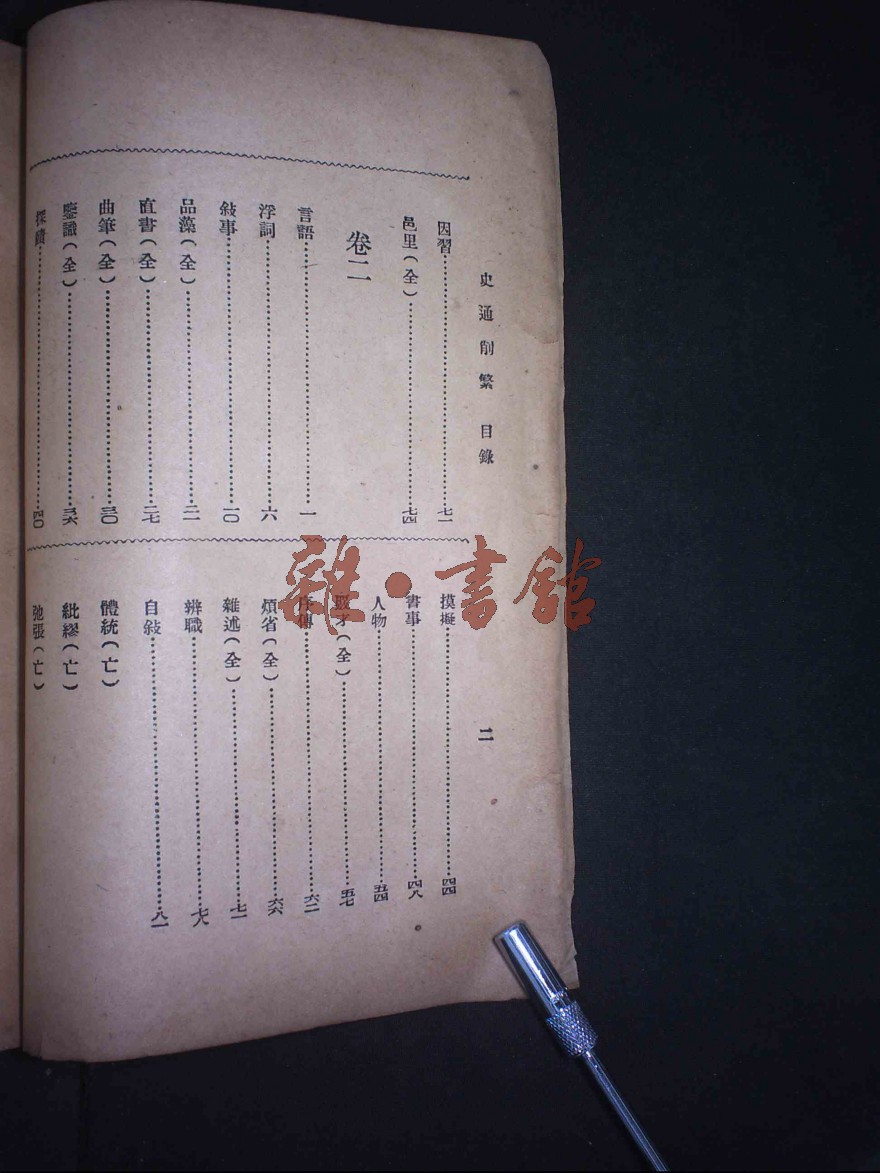 史通削繁 目錄
二
因習 七一
邑里(全) 七四
卷二
言語 一
浮詞 六
敍事 一〇
品藻(全) 二一
直書(全) 二七
曲筆(全) 三〇
鑒識(全) 三六
探賾 四〇
摸擬 四四
書事 四八
人物 五四
覈才(全) 五七
序傳 六二
煩省(全) 六六
雜述(全) 七一
辨職 七八
自敍 八一
體統(亡)
紕繆(亡)
弛張(亡)
雜·書館